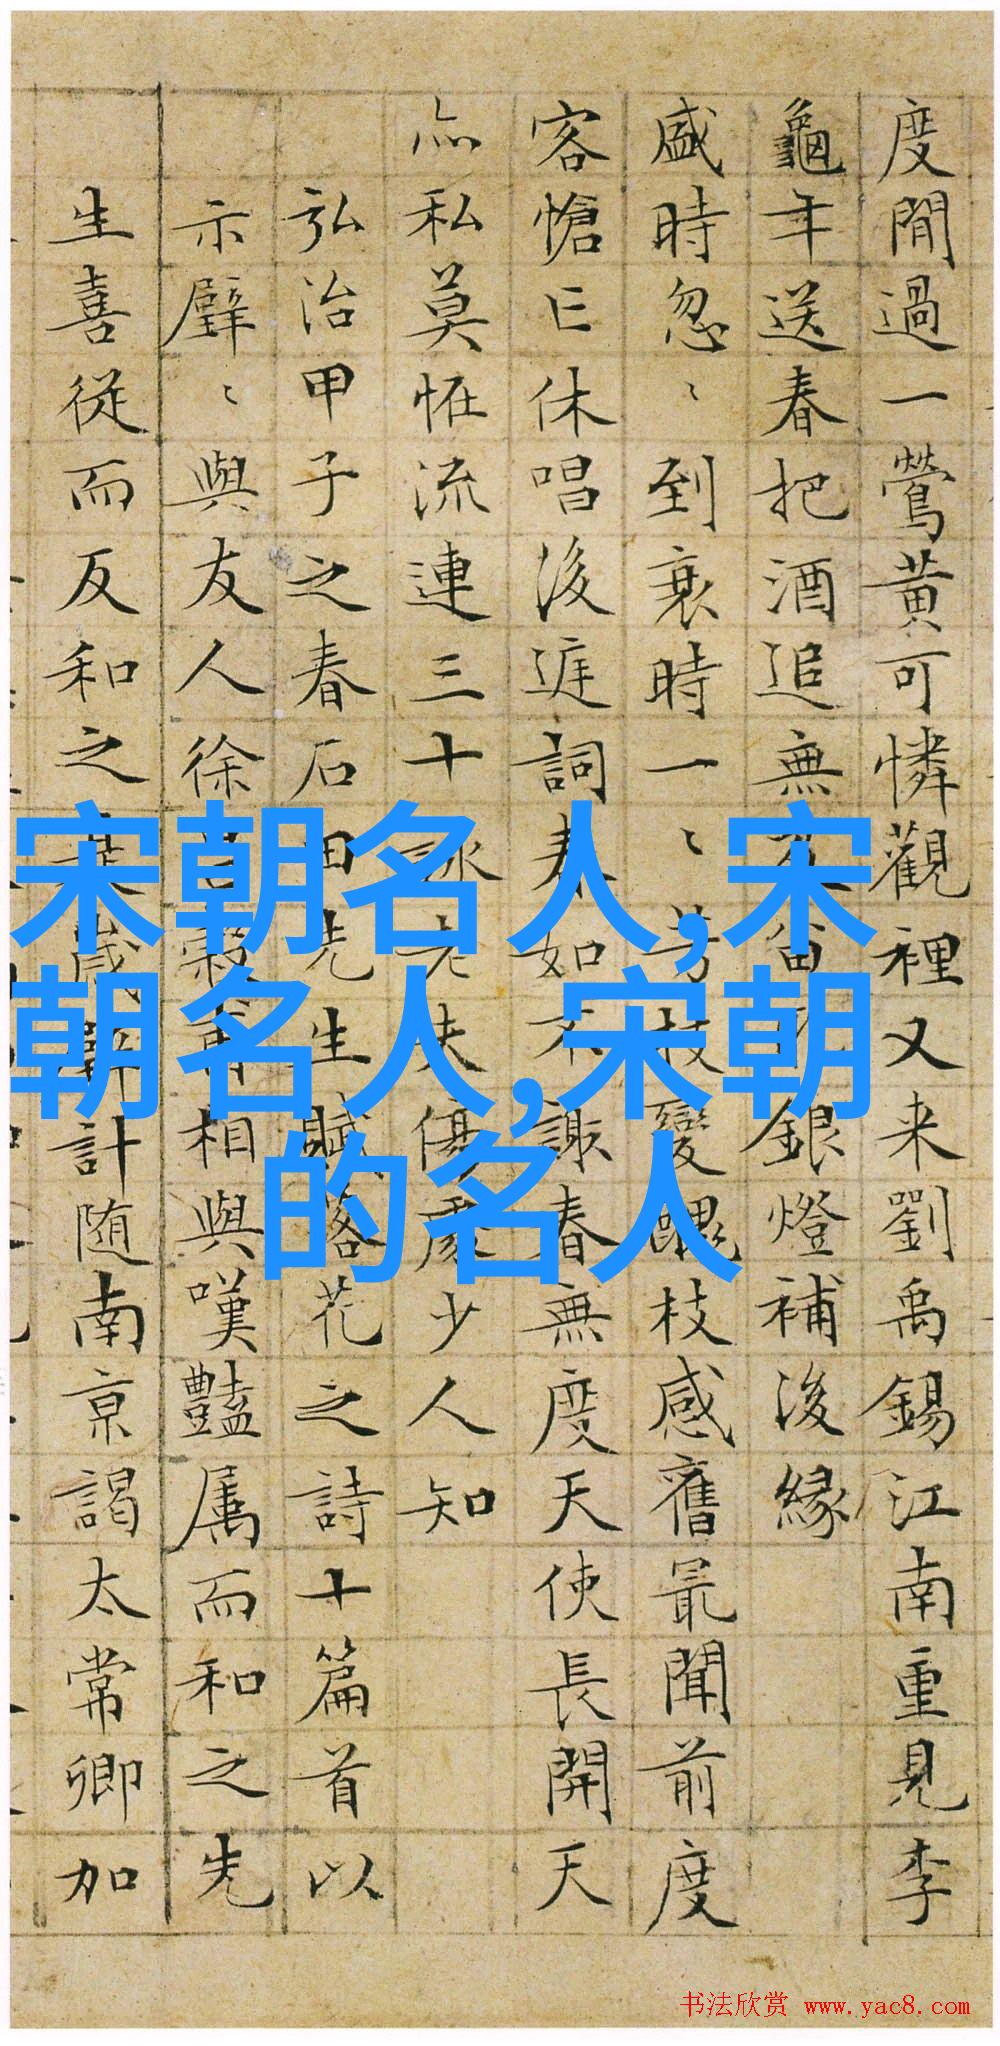 度閒過一鶯黃可憐觀裡又来劉禹錫江南重見李
龜年送春把酒追無留銀燈補後緣
盛時忽〻到衰時一〻芳枝變醜枝感舊最聞前度
客愴亡休唱後庭詞春如不謝春無度天使長開天
亦私莫恠流連三十詠老夫傷處少人知
弘治甲子之春石田先生賦落花之詩十篇首以
示璧〻與友人徐昌穀甫相與嘆豔屬而和之先
生喜從而反和之歲計随南京謁太常卿加
宋朝名人,宋
朝名人,宋朝
的名人
书法欣赏 www.yac8.com